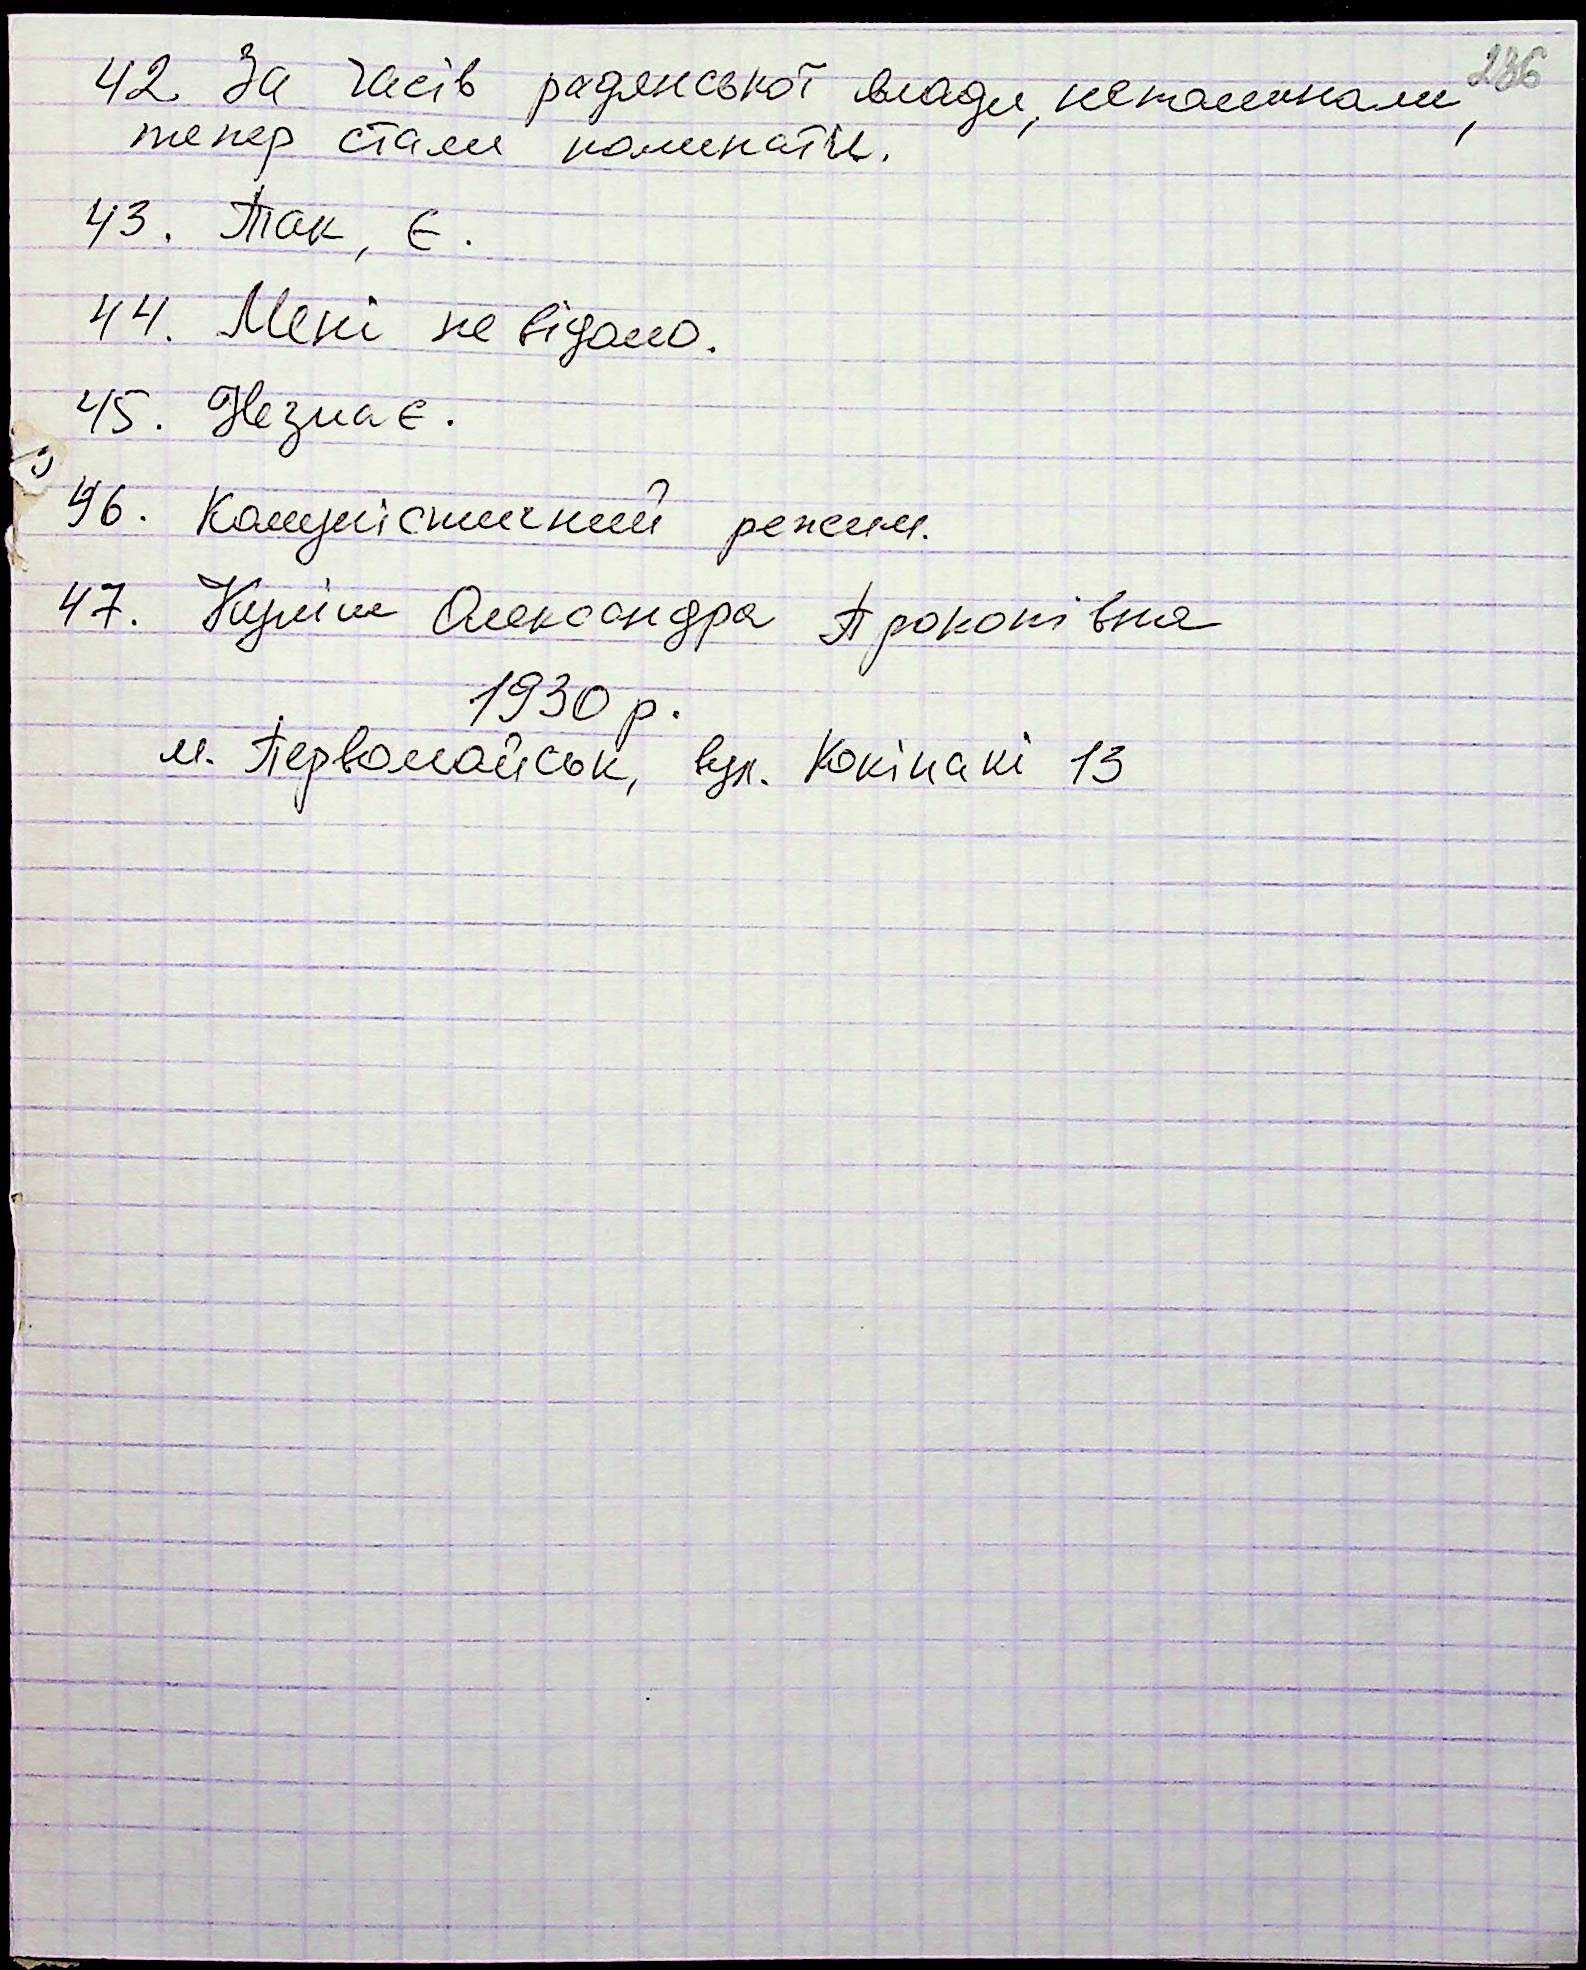 236
42. За часів радянської влади, непоминали,
тепер стали поминати.
43. Так, є.
44. Мені не відомо.
45. Незнає.
46. Комуністичний режим.
47. Куліш Олександра Прокопівна
1930 р.
м. Первомайськ, вул. Кокінакі 13